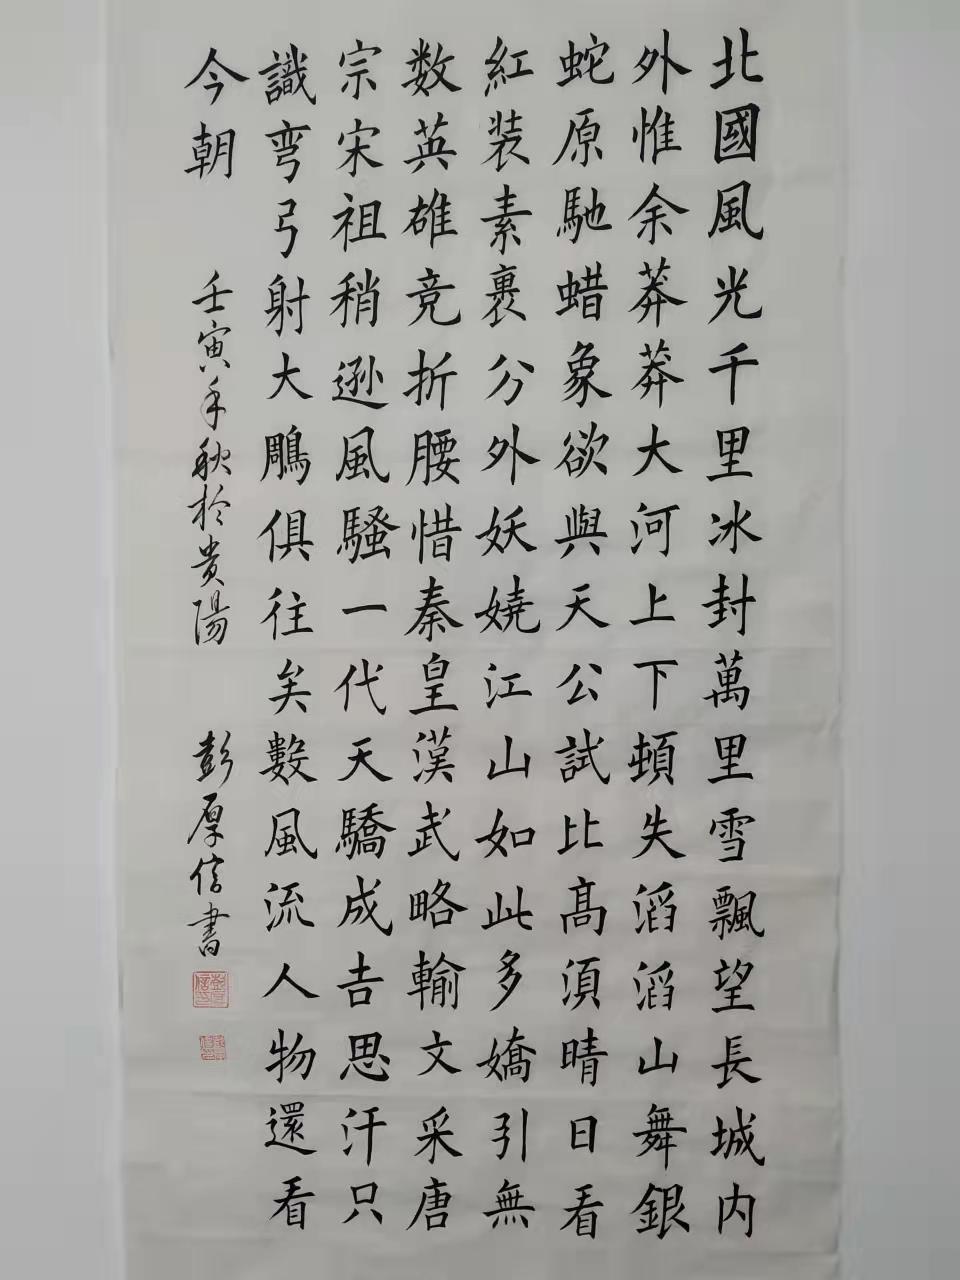 北國風光千里冰封萬里雪飄望長城内
外惟余莽莽大河上下頓失滔滔山舞銀
蛇原馳蜡象欲與天公試比高須晴日看
紅装素裹分外妖嬈江山如此多嬌引無
数英雄竞折腰惜秦皇漢武略輸文采唐
宗宋祖稍逊風騷一代天驕成吉思汗只
識弯弓射大鵰俱往矣數風流人物還看
今朝
壬寅年秋於貴陽
彭厚信書